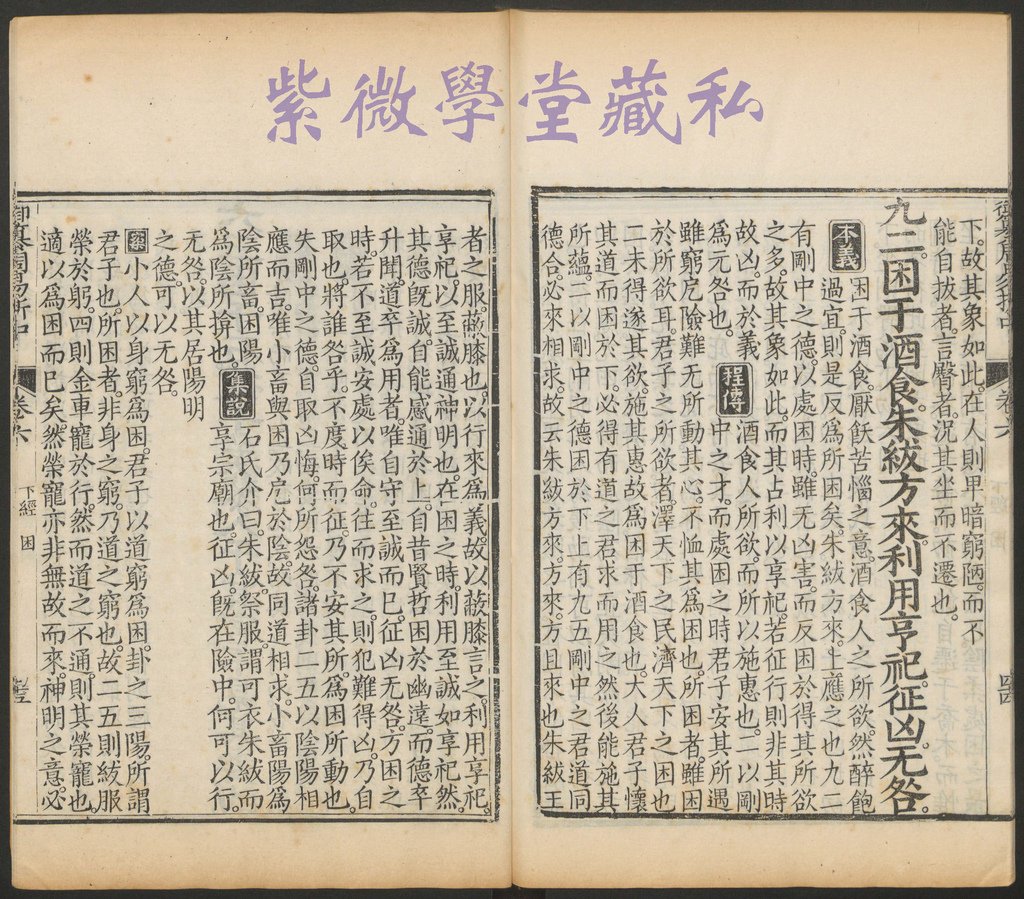 紫微學堂藏私
御纂周易折中 卷六 四四
下。故其象如此。在人則卑暗窮陋。而不
能自拔者。言臀者。況其坐而不遷也。
九二。困于酒食。朱紱方來。利用亨祀。征凶无咎。
本義 困于酒食。厭飫苦惱之意。酒食人之所欲。然醉飽
過宜。則是反爲所困矣。朱紱方來。上應之也。九二
有剛中之德。以處困時。雖无凶害。而反困於得其所欲
之多。故其象如此。而其占利以享祀。若征行則非其時
故凶。而於義 程傳 酒食人所欲。而所以施惠也。二以剛
爲无咎也。 中之才。而處困之時。君子安其所遇
雖窮戹險難。无所動其心。不恤其爲困也。所困者。雖困
於所欲耳。君子之所欲者。澤天下之民。濟天下之困也
二未得遂其欲。施其惠。故爲困于酒食也。大人君子懷
其道而困於下。必得有道之君。求而用之。然後能施其
所蘊。二以剛中之德困於下。上有九五剛中之君。道同
德合。必來相求。故云朱紱方來。方來。方且來也。朱紱王
者之服。蔽膝也。以行來爲義。故以蔽膝言之。利用享祀。
享祀。以至誠通神明也。在困之時。利用至誠如享祀然。
其德旣誠。自能感通於上。自昔賢哲困於幽遠。而德卒
升聞。道卒爲用者。唯自守至誠而已。征凶无咎。方困之
時。若不至誠安處以俟命。往而求之。則犯難得凶。乃自
取也。將誰咎乎。不度時而征。乃不安其所。爲困所動也。
失剛中之德。自取凶悔。何所怨咎。諸卦二五以陰陽相
應而吉。唯小畜與困。乃戹於陰。故同道相求。小畜陽爲
陰所畜。困陽 集說 石氏介曰。朱紱。祭服。謂可衣朱紱而
爲陰所揜也。 享宗廟也。征凶。旣在險中。何可以行。
无咎。以其居陽明
之德。可以无咎。
案 小人以身窮爲困。君子以道窮爲困。卦之三陽。所謂
君子也。所困者。非身之窮。乃道之窮也。故二五則紱服
榮於躬。四則金車寵於行。然而道之不通。則其榮寵也。
適以爲困而已矣。然榮寵亦非無故而來。神明之意。必
御纂周易折中 卷六 下經 困